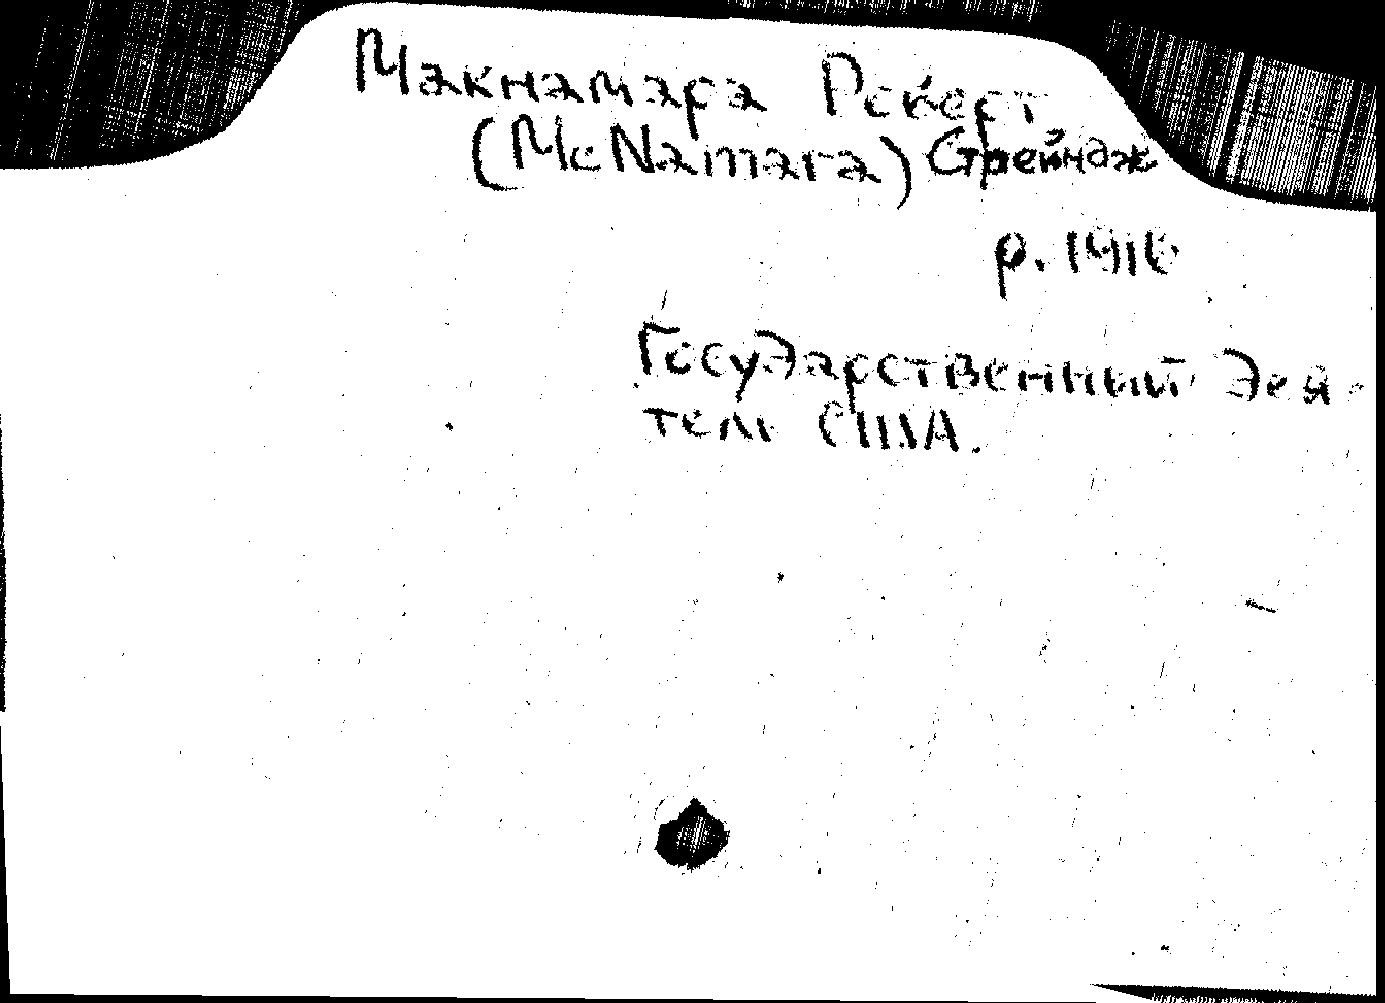 Макнамара Роберт
(McNamara) Стрейндж
р. 1916
Государственный дея-
тель США.